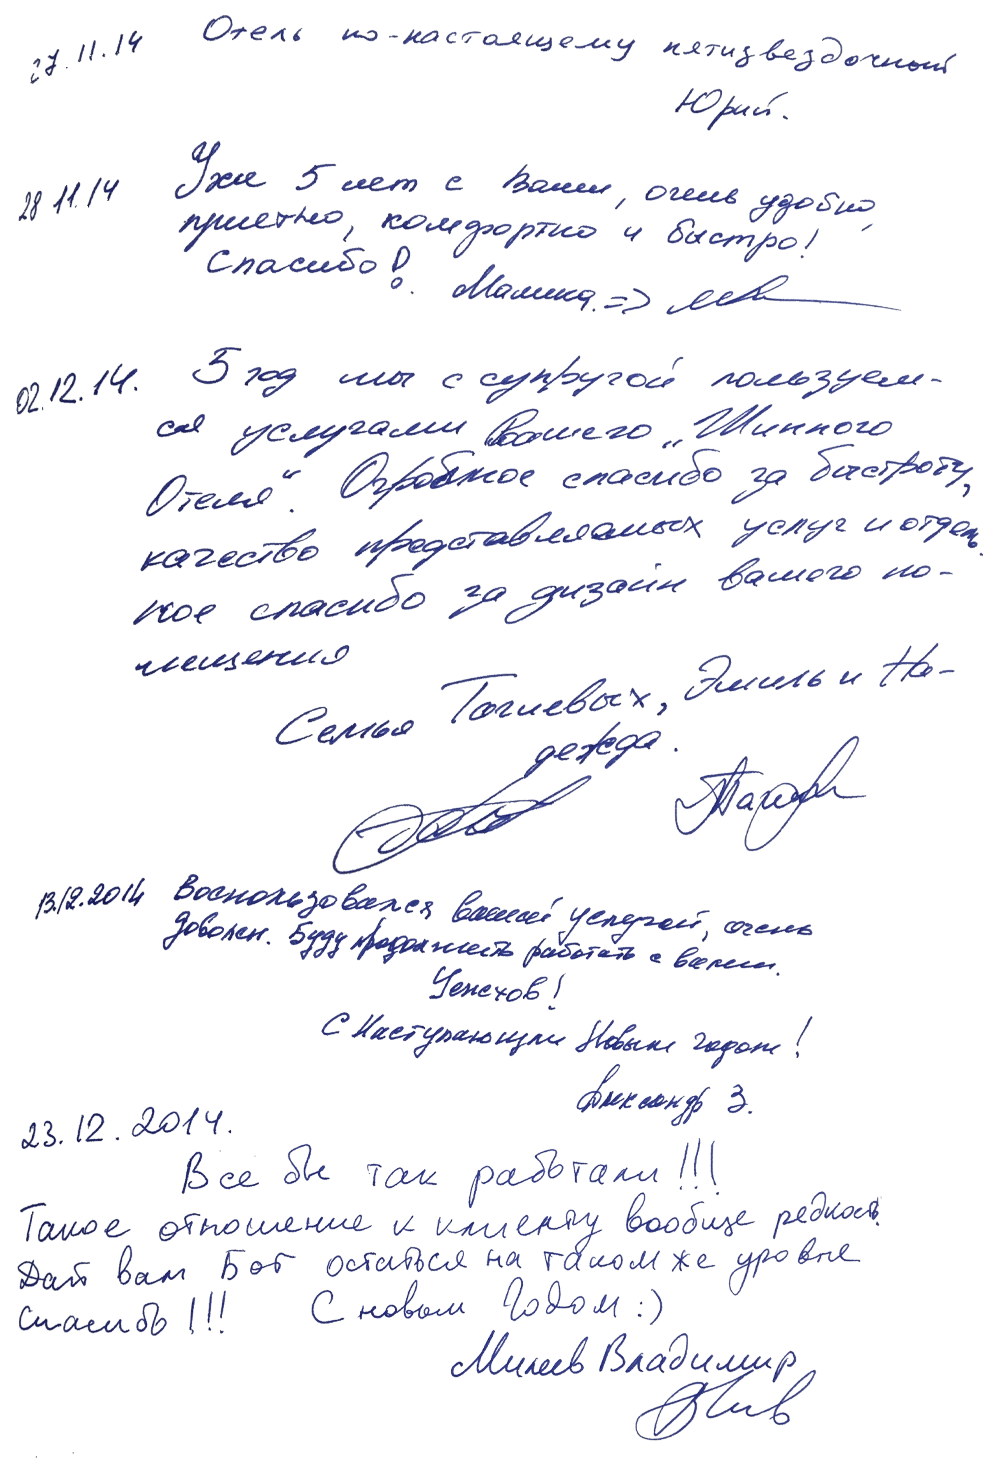 27.11.14 Отель по-настоящему пятизвездочный
Юрий.
28 11.14 Уже 5 лет с Вами, очень удобно,
приятно, комфортно и быстро!
Спасибо! Малика. =>
02.12.14. 5 год мы с супругой пользуем-
ся услугами Вашего „Шинного
Отеля“. Огромное спасибо за быстроту,
качество представляемых услуг и отдель-
ное спасибо за дизайн вашего по-
мещения
Семья Тагиевых, Эмиль и На-
дежда.
13.12.2014 Воспользовался вашей услугой, очень
доволен. Буду продолжать работать с вами.
Успехов!
С Наступающим Новым годом!
Александр З.
23.12.2014.
Все бы так работали!!!
Такое отношение к клиенту вообще редкость.
Дай вам Бог остаться на таком же уровне
спасибо!!! С новым Годом :)
Милев Владимир